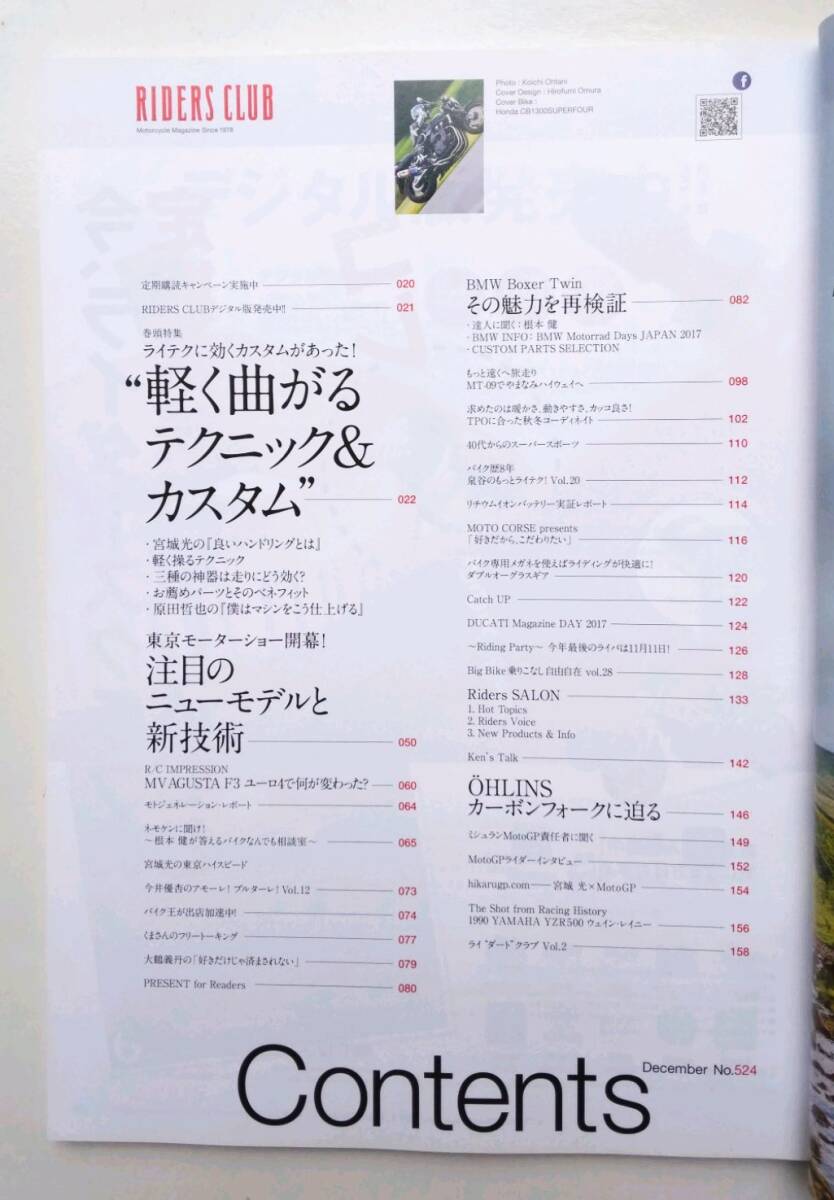 RIDERS CLUB
Motorcycle Magazine Since 1978
Photo : Koichi Ohtani
Cover Design : Hirofumi Omura
Cover Bike :
Honda CB1300SUPERFOUR
定期購読キャンペーン実施中 020
RIDERS CLUBデジタル版発売中!! 021
巻頭特集
ライテクに効くカスタムがあった!
“軽く曲がる
テクニック&
カスタム” 022
・宮城光の『良いハンドリングとは』
・軽く操るテクニック
・三種の神器は走りにどう効く?
・お薦めパーツとそのベネフィット
・原田哲也の『僕はマシンをこう仕上げる』
東京モーターショー開幕!
注目の
ニューモデルと
新技術 050
R/C IMPRESSION
MV AGUSTA F3 ユーロ4で何が変わった? 060
モトジェネレーション・レポート 064
ネモケンに聞け!
〜根本 健が答えるバイクなんでも相談室〜 065
宮城光の東京ハイスピード
今井優杏のアモーレ! ブルターレ! Vol.12 073
バイク王が出店加速中! 074
くまさんのフリートーキング 077
大鶴義丹の「好きだけじゃ済まされない」 079
PRESENT for Readers 080
BMW Boxer Twin
その魅力を再検証 082
・達人に聞く：根本 健
・BMW INFO：BMW Motorrad Days JAPAN 2017
・CUSTOM PARTS SELECTION
もっと遠くへ旅走り
MT-09でやまなみハイウェイへ 098
求めたのは暖かさ、動きやすさ、カッコ良さ!
TPOに合った秋冬コーディネイト 102
40代からのスーパースポーツ 110
バイク歴8年
泉谷のもっとライテク! Vol.20 112
リチウムイオンバッテリー実証レポート 114
MOTO CORSE presents
「好きだから、こだわりたい」 116
バイク専用メガネを使えばライディングが快適に!
ダブルオーグラスギア 120
Catch UP 122
DUCATI Magazine DAY 2017 124
〜Riding Party〜 今年最後のライパは11月11日! 126
Big Bike 乗りこなし 自由自在 vol.28 128
Riders SALON 133
1. Hot Topics
2. Riders Voice
3. New Products & Info
Ken's Talk 142
ÖHLINS
カーボンフォークに迫る 146
ミシュランMotoGP責任者に聞く 149
MotoGPライダーインタビュー 152
hikarugp.com――宮城 光×MotoGP 154
The Shot from Racing History
1990 YAMAHA YZR500 ウェイン・レイニー 156
ライ“ダート”クラブ Vol.2 158
Contents
December No.524